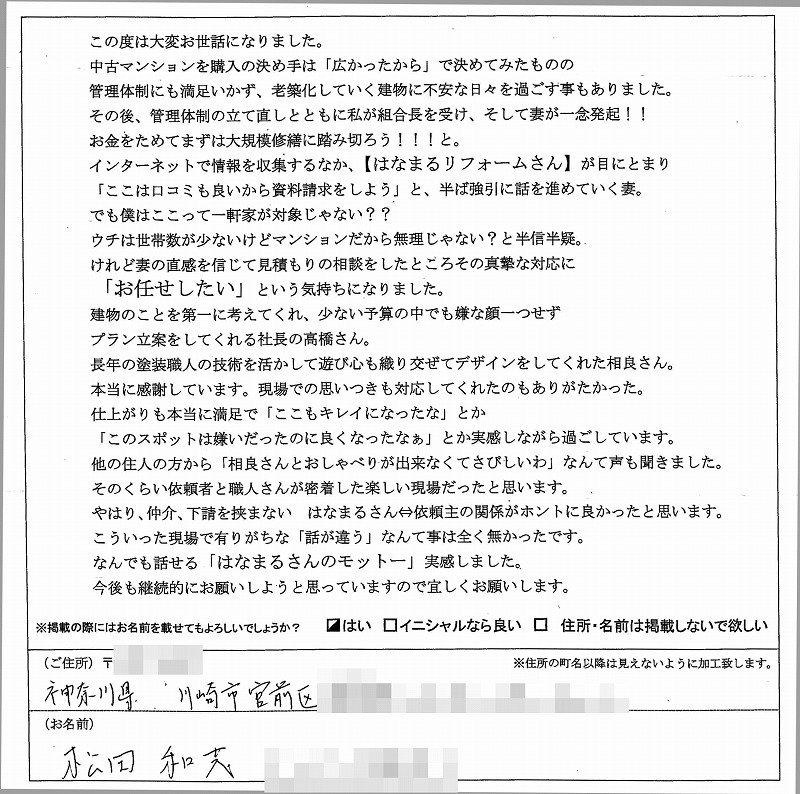 この度は大変お世話になりました。
中古マンションを購入の決め手は「広かったから」で決めてみたものの
管理体制にも満足いかず、老築化していく建物に不安な日々を過ごす事もありました。
その後、管理体制の立て直しとともに私が組合長を受け、そして妻が一念発起！！
お金をためてまずは大規模修繕に踏み切ろう！！！と。
インターネットで情報を収集するなか、【はなまるリフォームさん】が目にとまり
「ここは口コミも良いから資料請求をしよう」と、半ば強引に話を進めていく妻。
でも僕はここって一軒家が対象じゃない？？
ウチは世帯数が少ないけどマンションだから無理じゃない？と半信半疑。
けれど妻の直感を信じて見積もりの相談をしたところその真摯な対応に
「お任せしたい」という気持ちになりました。
建物のことを第一に考えてくれ、少ない予算の中でも嫌な顔一つせず
プラン立案をしてくれる社長の高橋さん。
長年の塗装職人の技術を活かして遊び心も織り交ぜてデザインをしてくれた相良さん。
本当に感謝しています。現場での思いつきも対応してくれたのもありがたかった。
仕上がりも本当に満足で「ここもキレイになったな」とか
「このスポットは嫌いだったのに良くなったなぁ」とか実感しながら過ごしています。
他の住人の方から「相良さんとおしゃべりが出来なくてさびしいわ」なんて声も聞きました。
そのくらい依頼者と職人さんが密着した楽しい現場だったと思います。
やはり、仲介、下請を挟まない　はなまるさん⇔依頼主の関係がホントに良かったと思います。
こういった現場で有りがちな「話が違う」なんて事は全く無かったです。
なんでも話せる「はなまるさんのモットー」実感しました。
今後も継続的にお願いしようと思っていますので宜しくお願いします。
※掲載の際にはお名前を載せてもよろしいでしょうか？ ☑はい □イニシャルなら良い □ 住所・名前は掲載しないで欲しい
（ご住所）〒 ※住所の町名以降は見えないように加工致します。
神奈川県 川崎市宮前区
（お名前）
松田 和茂